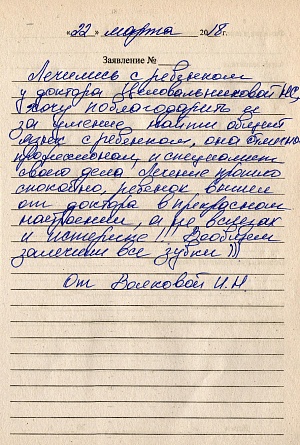 « 22 » марта 2018 г.
Заявление №
Лечились с ребёнком
у доктора Целовальниковой НС,
хочу поблагодарить ее
за умение найти общий
язык с ребенком, она отличный
профессионал и специалист
своего дела. Лечение прошло
спокойно, ребёнок вышел
от доктора в прекрасном
настроении, а не в слезах
и истерике!! Вообщем
залечили все зубки)))
От Волковой И.Н